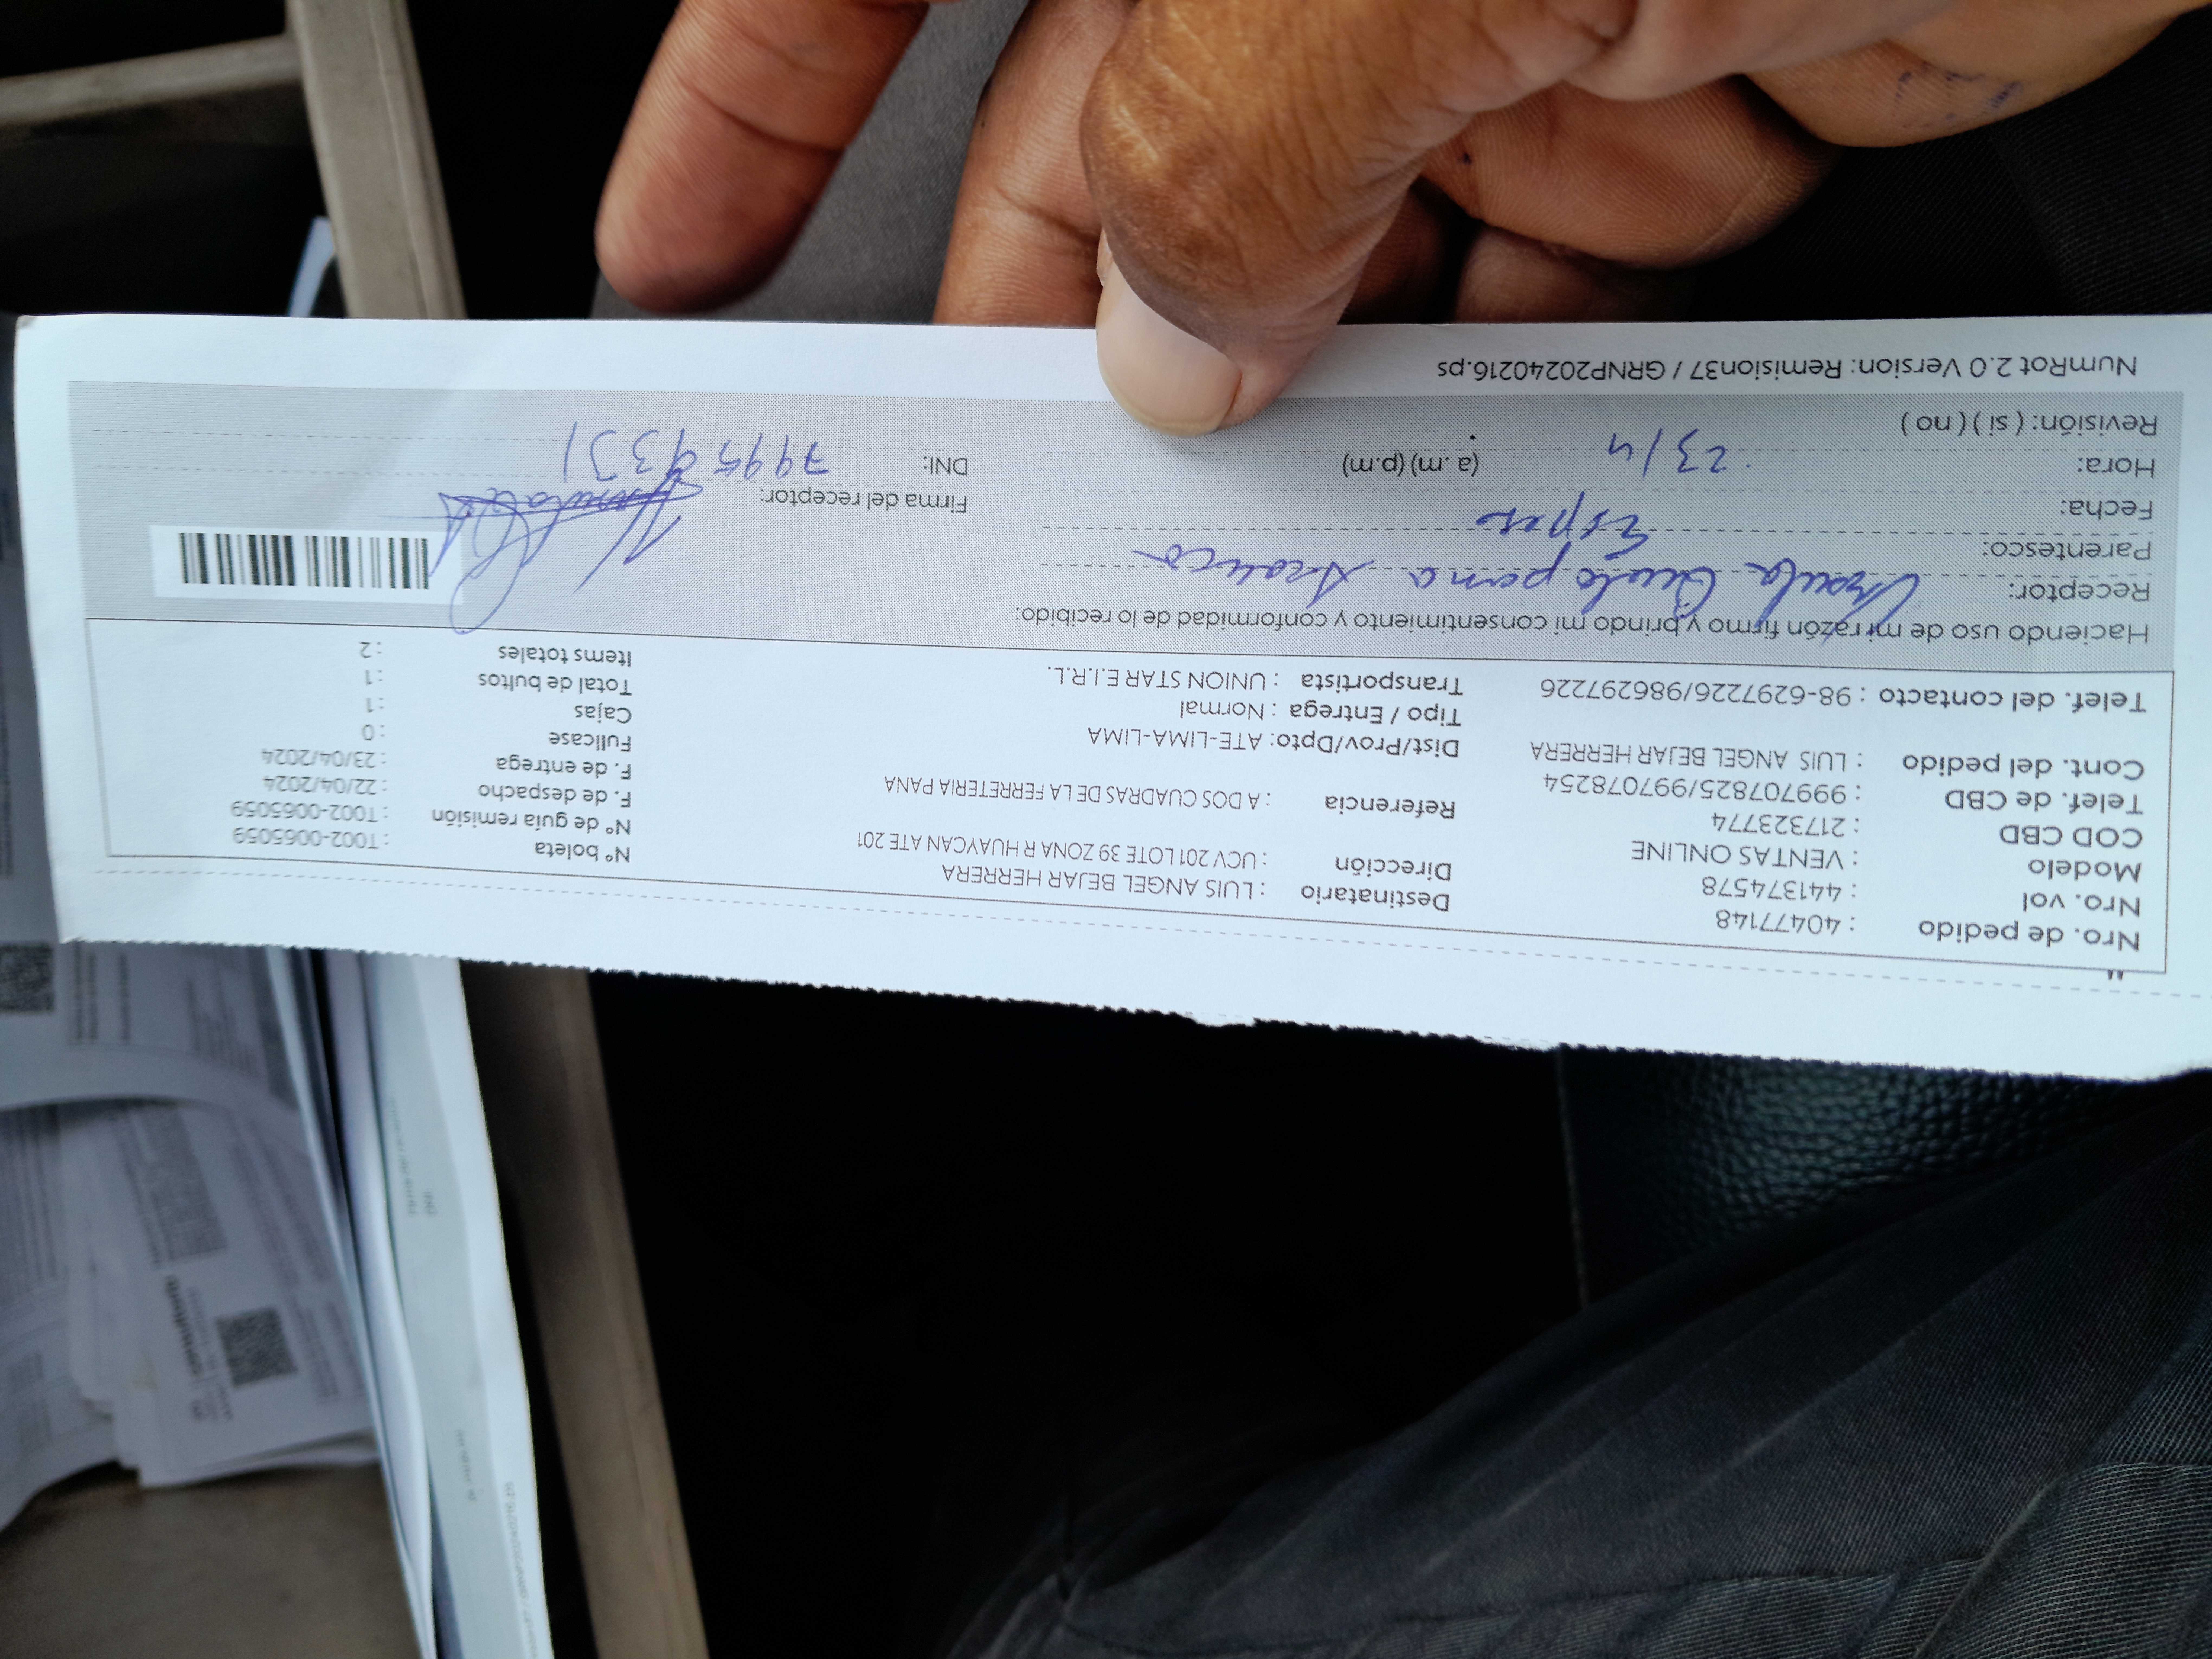 Nro. de pedido : 40477148
Nro. vol : 441374578
Modelo : VENTAS ONLINE
COD CBD : 217323774
Telef. de CBD : 999707825/997078254
Cont. del pedido : LUIS ANGEL BEJAR HERRERA
Telef. del contacto : 98-6297226/986297226
Destinatario : LUIS ANGEL BEJAR HERRERA
Dirección : UCV 201 LOTE 39 ZONA R HUAYCAN ATE 201
Referencia : A DOS CUADRAS DE LA FERRETERIA PANA
Dist/Prov/Dpto: ATE-LIMA-LIMA
Tipo / Entrega : Normal
Transportista : UNION STAR E.I.R.L.
N° boleta : T002-0065059
N° de guía remisión : T002-0065059
F. de despacho : 22/04/2024
F. de entrega : 23/04/2024
Fullcase : 0
Cajas : 1
Total de bultos : 1
Items totales : 2
Haciendo uso de mi razón firmo y brindo mi consentimiento y conformidad de lo recibido:
Receptor:
Parentesco:
Fecha:
Hora: 23/4 (a.m) (p.m)
Revisión: ( si ) ( no )
Firma del receptor:
DNI:
NumRot 2.0 Version: Remision37 / GRNP20240216.ps